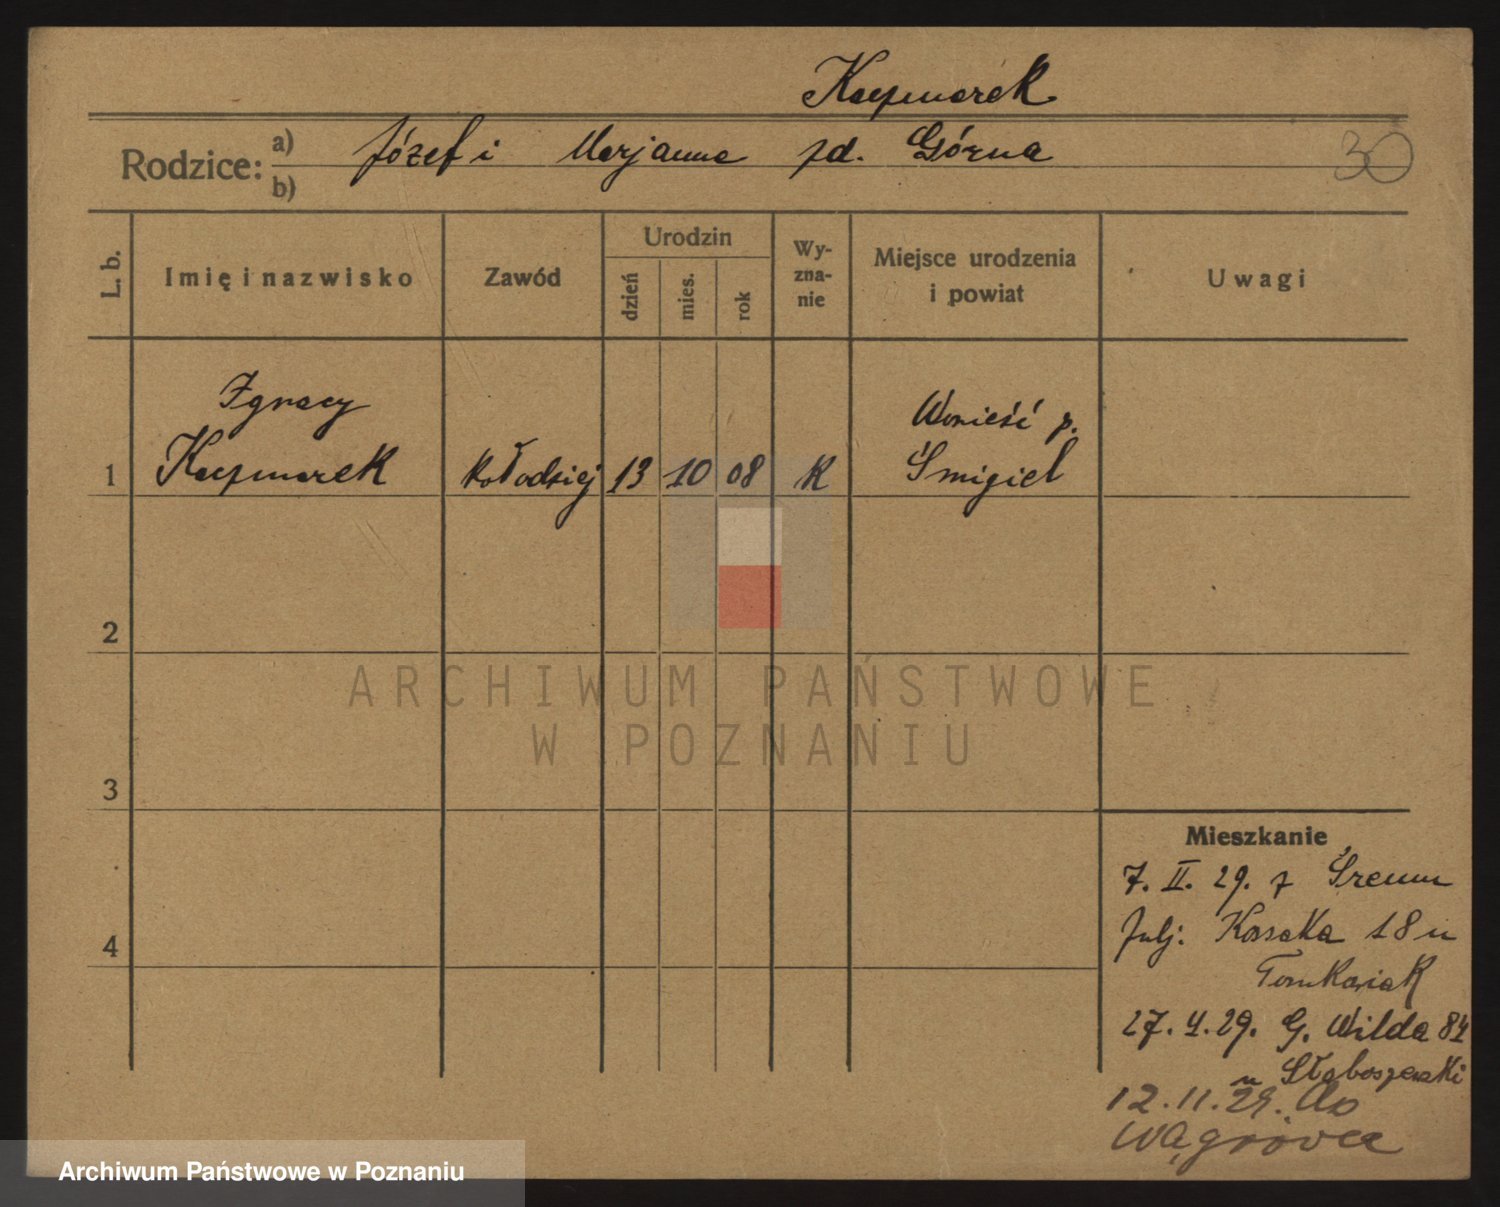 Kaczmarek
Rodzice: a) Józef i Marjanna zd. Górna
b)
30
L. b.
Imię i nazwisko
Zawód
Urodzin
dzień
mies.
rok
Wy-
zna-
nie
Miejsce urodzenia
i powiat
Uwagi
Ignacy
Wonieść p.
1 Kaczmarek kołodziej 13 10 08 K Śmigiel
2
ARCHIWUM PAŃSTWOWE
W POZNANIU
3
Mieszkanie
7. II. 29. z Śremu
Julj. Kossaka 18 u
4
Tomkowiak
27. 4. 29. G. Wilda 84
u Słaboszewski
12. 11. 29. do
Wągrówca
Archiwum Państwowe w Poznaniu